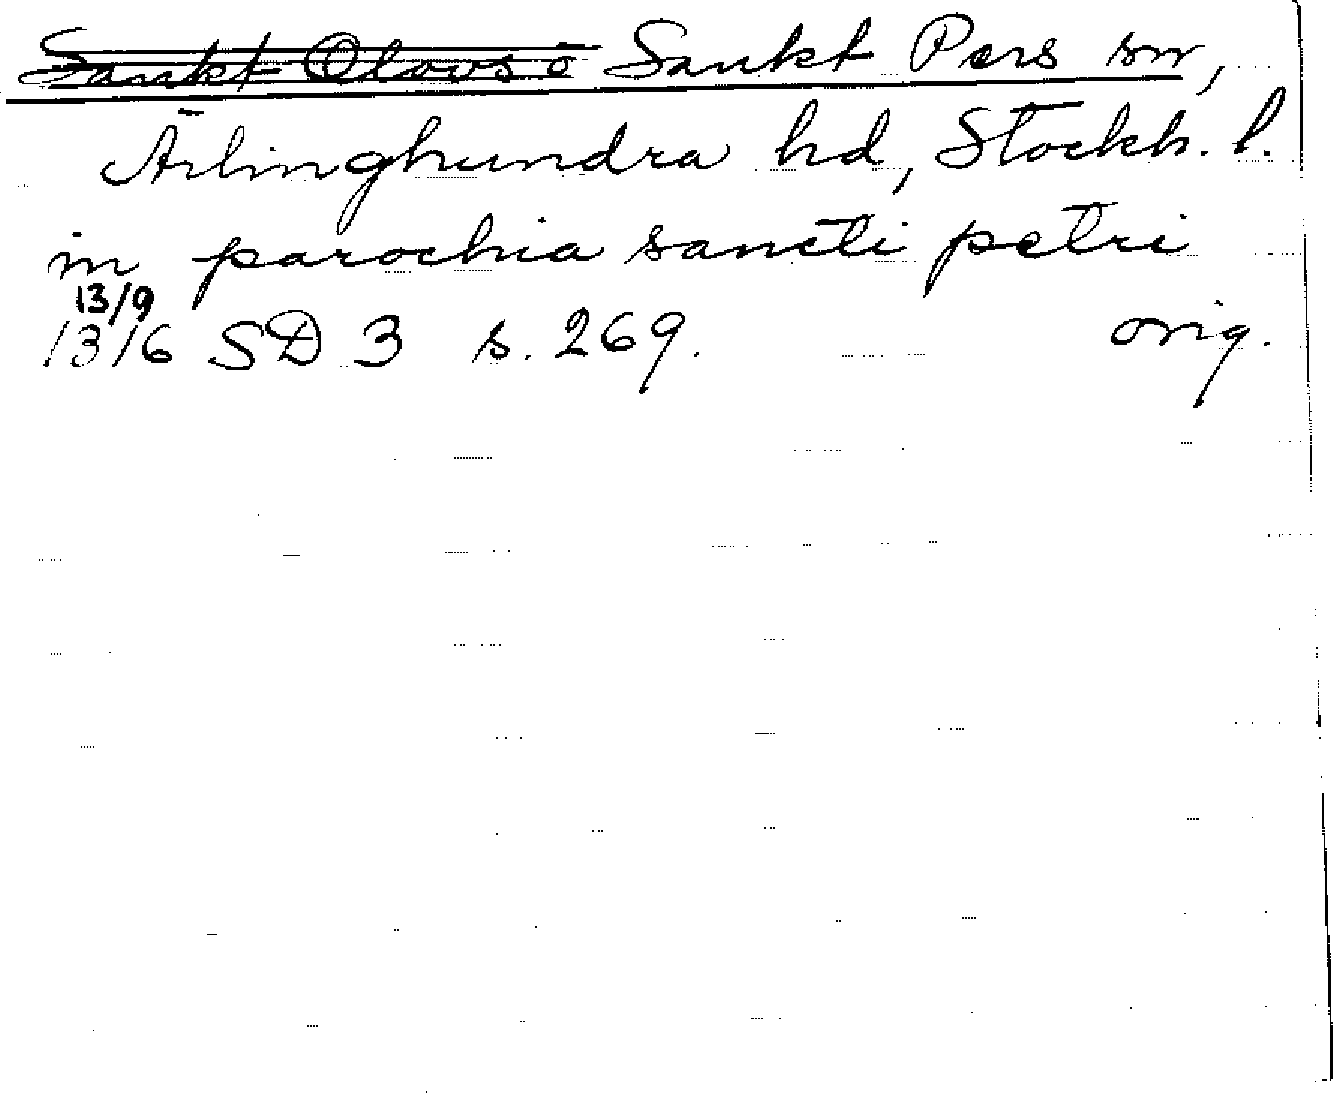 Sankt Olovs ö Sankt Pers sn,
Ärlinghundra hd, Stockh. l.
in parochia sancti petri
13/9
1316 SD 3 s. 269. orig.